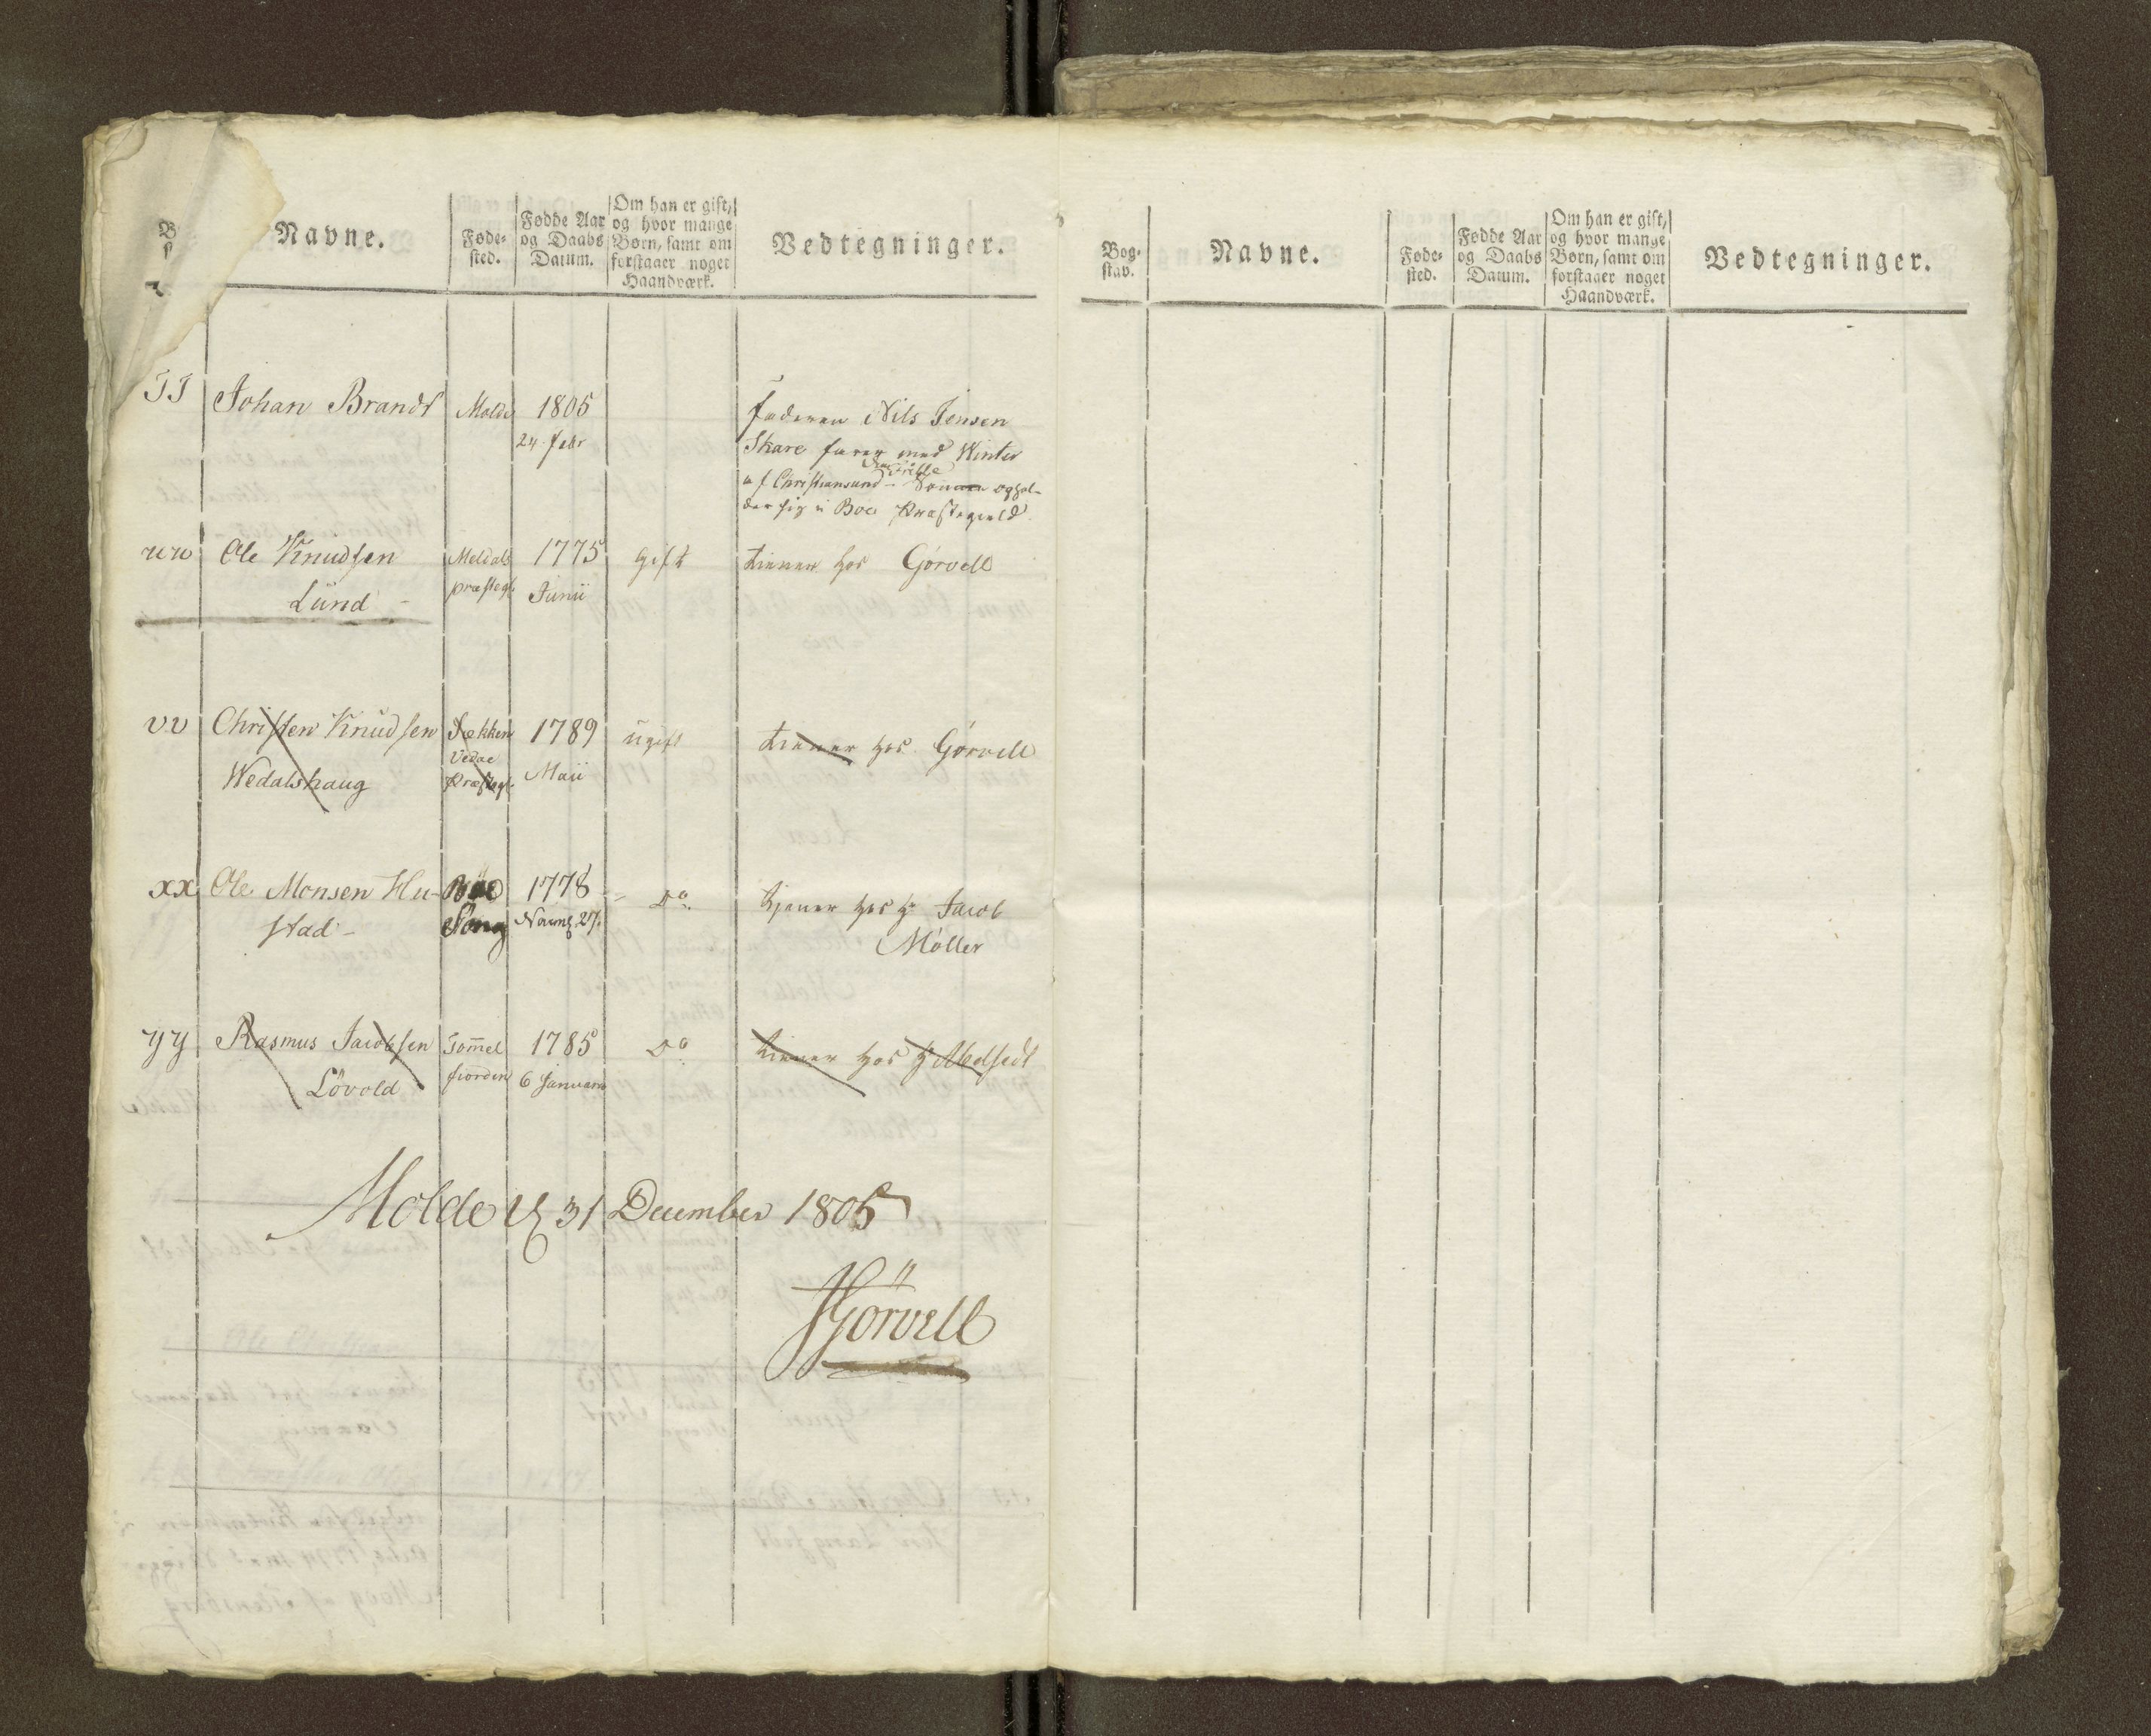 Navne.
Føde-
sted.
Fødde Aar
og Daabs
Datum.
Om han er gift,
og hvor mange
Børn, samt om
forstaaer noget
Haandværk.
Vedtegninger.
Johan Brandt Molde 1805
24 Febr
Faderen Nils Jensen
Skare farer med Winter
af Christiansund - ophol-
der sig i Boe Præstegield
uu Ole Knudsen Meldals 1775 gift tiener hos Gørvell
Lund - præstegl. Junii
vv Christen Knudsen 1789 ugift tiener hos Gørvell
Vedøe
Wedalshaug Præstegl. Maii
xx Ole Monsen Hu- Boe 1778 - Do tjener hos Hr Jacob
stad - Novmb. 27.
Møller
yy Rasmus Jacobsen Tom̅el 1785 Do tiener hos
Lövold fiorden 6 Januarii
Molde d 31 December 1805
Görvell
Bog-
stav.
Navne.
Føde-
sted.
Fødde Aar
og Daabs
Datum.
Om han er gift,
og hvor mange
Børn, samt om
forstaaer noget
Haandværk.
Vedtegninger.